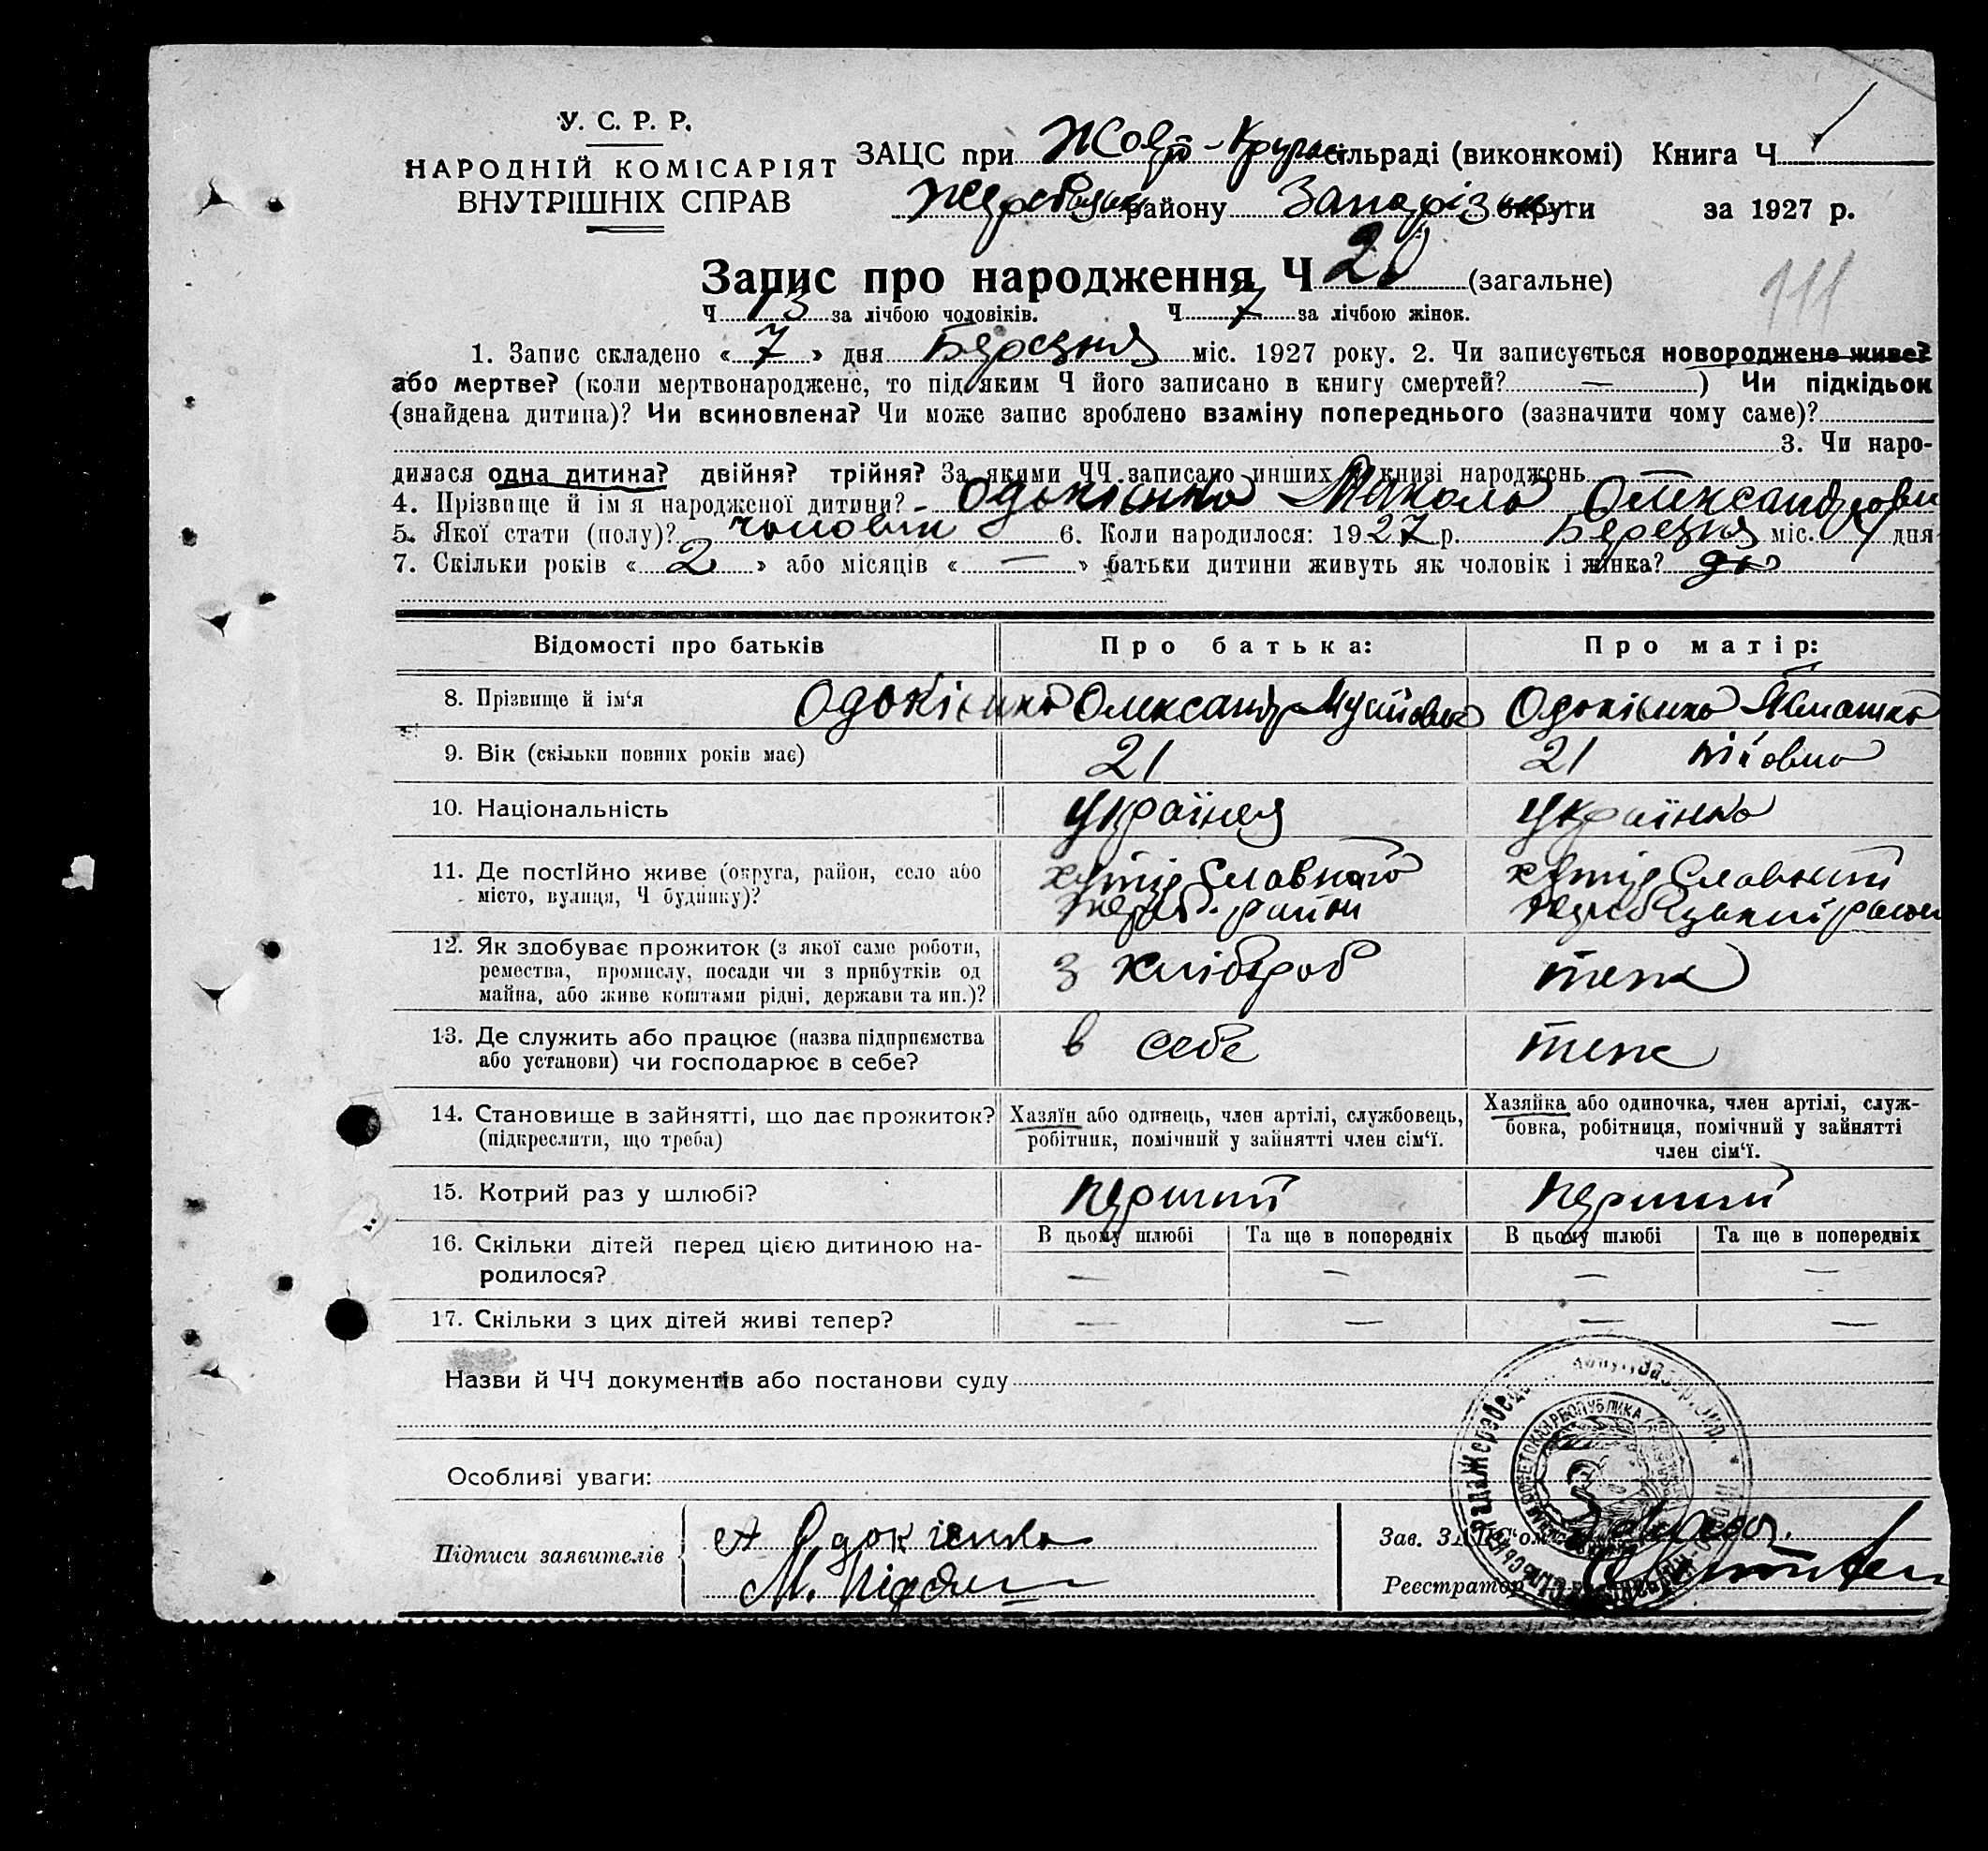 У. С. Р. Р.
НАРОДНІЙ КОМІСАРІЯТ
ВНУТРІШНІХ СПРАВ
ЗАЦС при Жовт-Круг сільраді (виконкомі) Книга Ч 1
Жеребецьк району Запоріз округи за 1927 р.
Запис про народження Ч 20 (загальне)
111
Ч 13 за лічбою чоловіків. Ч 7 за лічбою жінок.
1. Запис складено « 7 » дня Березня міс. 1927 року. 2. Чи записується новороджене живе?
або мертве? (коли мертвонароджене, то під яким Ч його записано в книгу смертей? — ) Чи підкідьок
(знайдена дитина)? Чи всиновлена? Чи може запис зроблено взаміну попереднього (зазначити чому саме)?
3. Чи наро-
дилася одна дитина? двійня? трійня? За якими ЧЧ записано инших в книзі народжень
4. Прізвище й ім'я народженої дитини? - Одокієнко Микола Олександрови
5. Якої стати (полу)? чоловіч 6. Коли народилося: 1927 р. Березня міс. 4 дня
7. Скільки років « 2 » або місяців « — » батьки дитини живуть як чоловік і жінка?
Відомості про батьків Про батька: Про матір:
8. Прізвище й ім'я Одокієнко Олександр Одокієнко
9. Вік (скільки повних років має) 21 21
10. Національність Українец Українка
11. Де постійно живе (округа, район, село або хутір Славного хутір Славний
місто, вулиця, Ч будинку)? Жереб. район Жеребецький район
12. Як здобуває прожиток (з якої саме роботи,
ремества, промислу, посади чи з прибутків од з хлібороб теж
майна, або живе коштами рідні, держави та ин.)?
13. Де служить або працює (назва підприємства в себе теж
або установи) чи господарює в себе?
14. Становище в зайнятті, що дає прожиток? Хазяїн або одинець, член артілі, службовець, Хазяйка або одиночка, член артілі, служ-
(підкреслити, що треба) робітник, помічний у зайнятті член сім'ї. бовка, робітниця, помічний у зайнятті
член сім'ї.
15. Котрий раз у шлюбі? перший перший
16. Скільки дітей перед цією дитиною на- В цьому шлюбі Та ще в попередніх В цьому шлюбі Та ще в попередніх
родилося? — — — —
17. Скільки з цих дітей живі тепер? — — — —
Назви й ЧЧ документів або постанови суду
Особливі уваги:
Підписи заявителів А Одокієнко
Зав. ЗАЦС'ом
Реєстратор